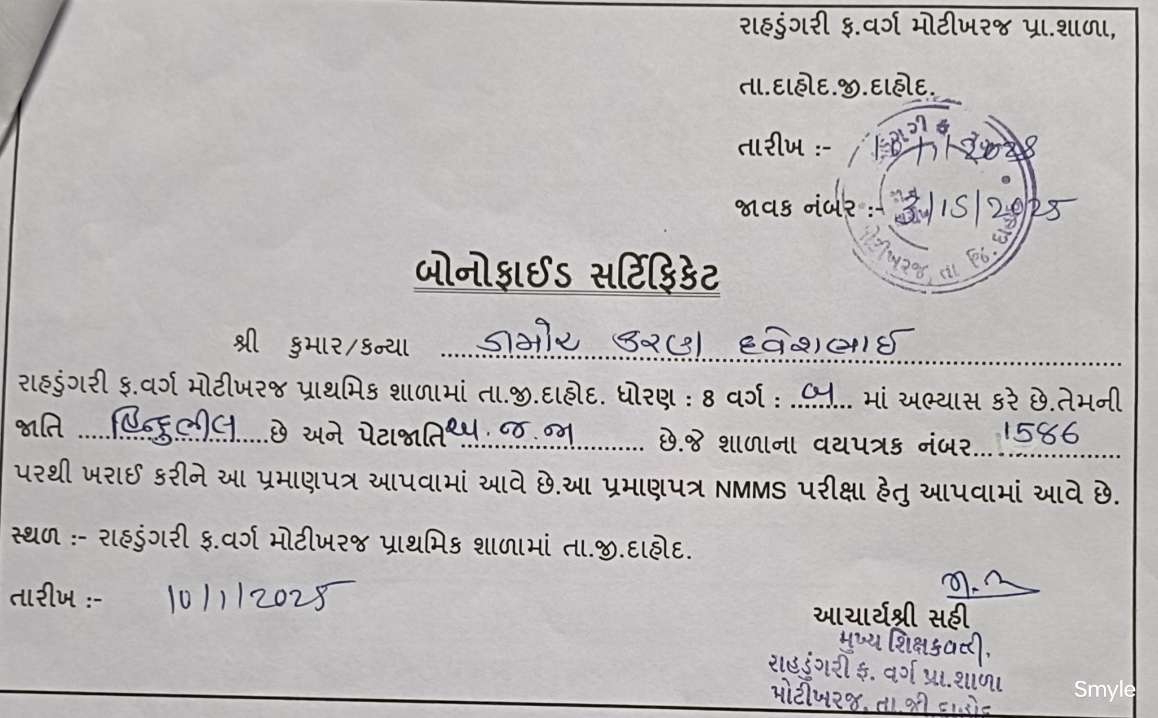 રાહડુંગરી ફ.વર્ગ મોટીખરજ પ્રા.શાળા,
તા.દાહોદ.જી.દાહોદ.
તારીખ :-
જાવક નંબર :- /15/2025
બોનોફાઈડ સર્ટિફિકેટ
શ્રી કુમાર/કન્યા ડામોર કરણ
રાહડુંગરી ફ.વર્ગ મોટીખરજ પ્રાથમિક શાળામાં તા.જી.દાહોદ. ધોરણ : 8 વર્ગ : બ માં અભ્યાસ કરે છે.તેમની
જાતિ હિન્દુભીલ છે અને પેટાજાતિ અ.જ.જા છે.જે શાળાના વયપત્રક નંબર... 1586
પરથી ખરાઈ કરીને આ પ્રમાણપત્ર આપવામાં આવે છે.આ પ્રમાણપત્ર NMMS પરીક્ષા હેતુ આપવામાં આવે છે.
સ્થળ :- રાહડુંગરી ફ.વર્ગ મોટીખરજ પ્રાથમિક શાળામાં તા.જી.દાહોદ.
તારીખ :- 10/1/2025
આચાર્યશ્રી સહી
મુખ્ય શિક્ષકવતી,
રાહડુંગરી ફ. વર્ગ પ્રા.શાળા
મોટીખરજ, તા.જી દાહોદ
Smyle